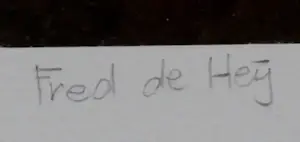 Fred de Heÿ